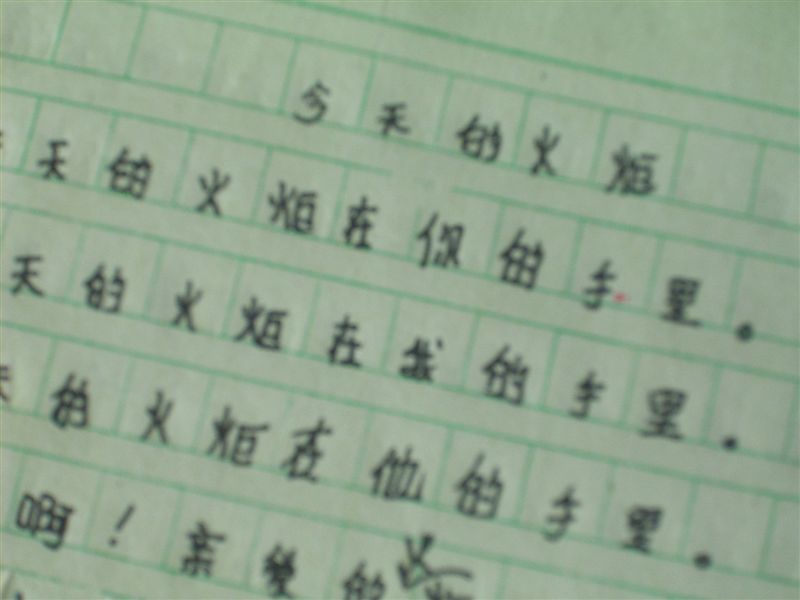 今天的火炬
天的火炬在你的手里。
天的火炬在我的手里。
天的火炬在他的手里。
啊！亲爱的